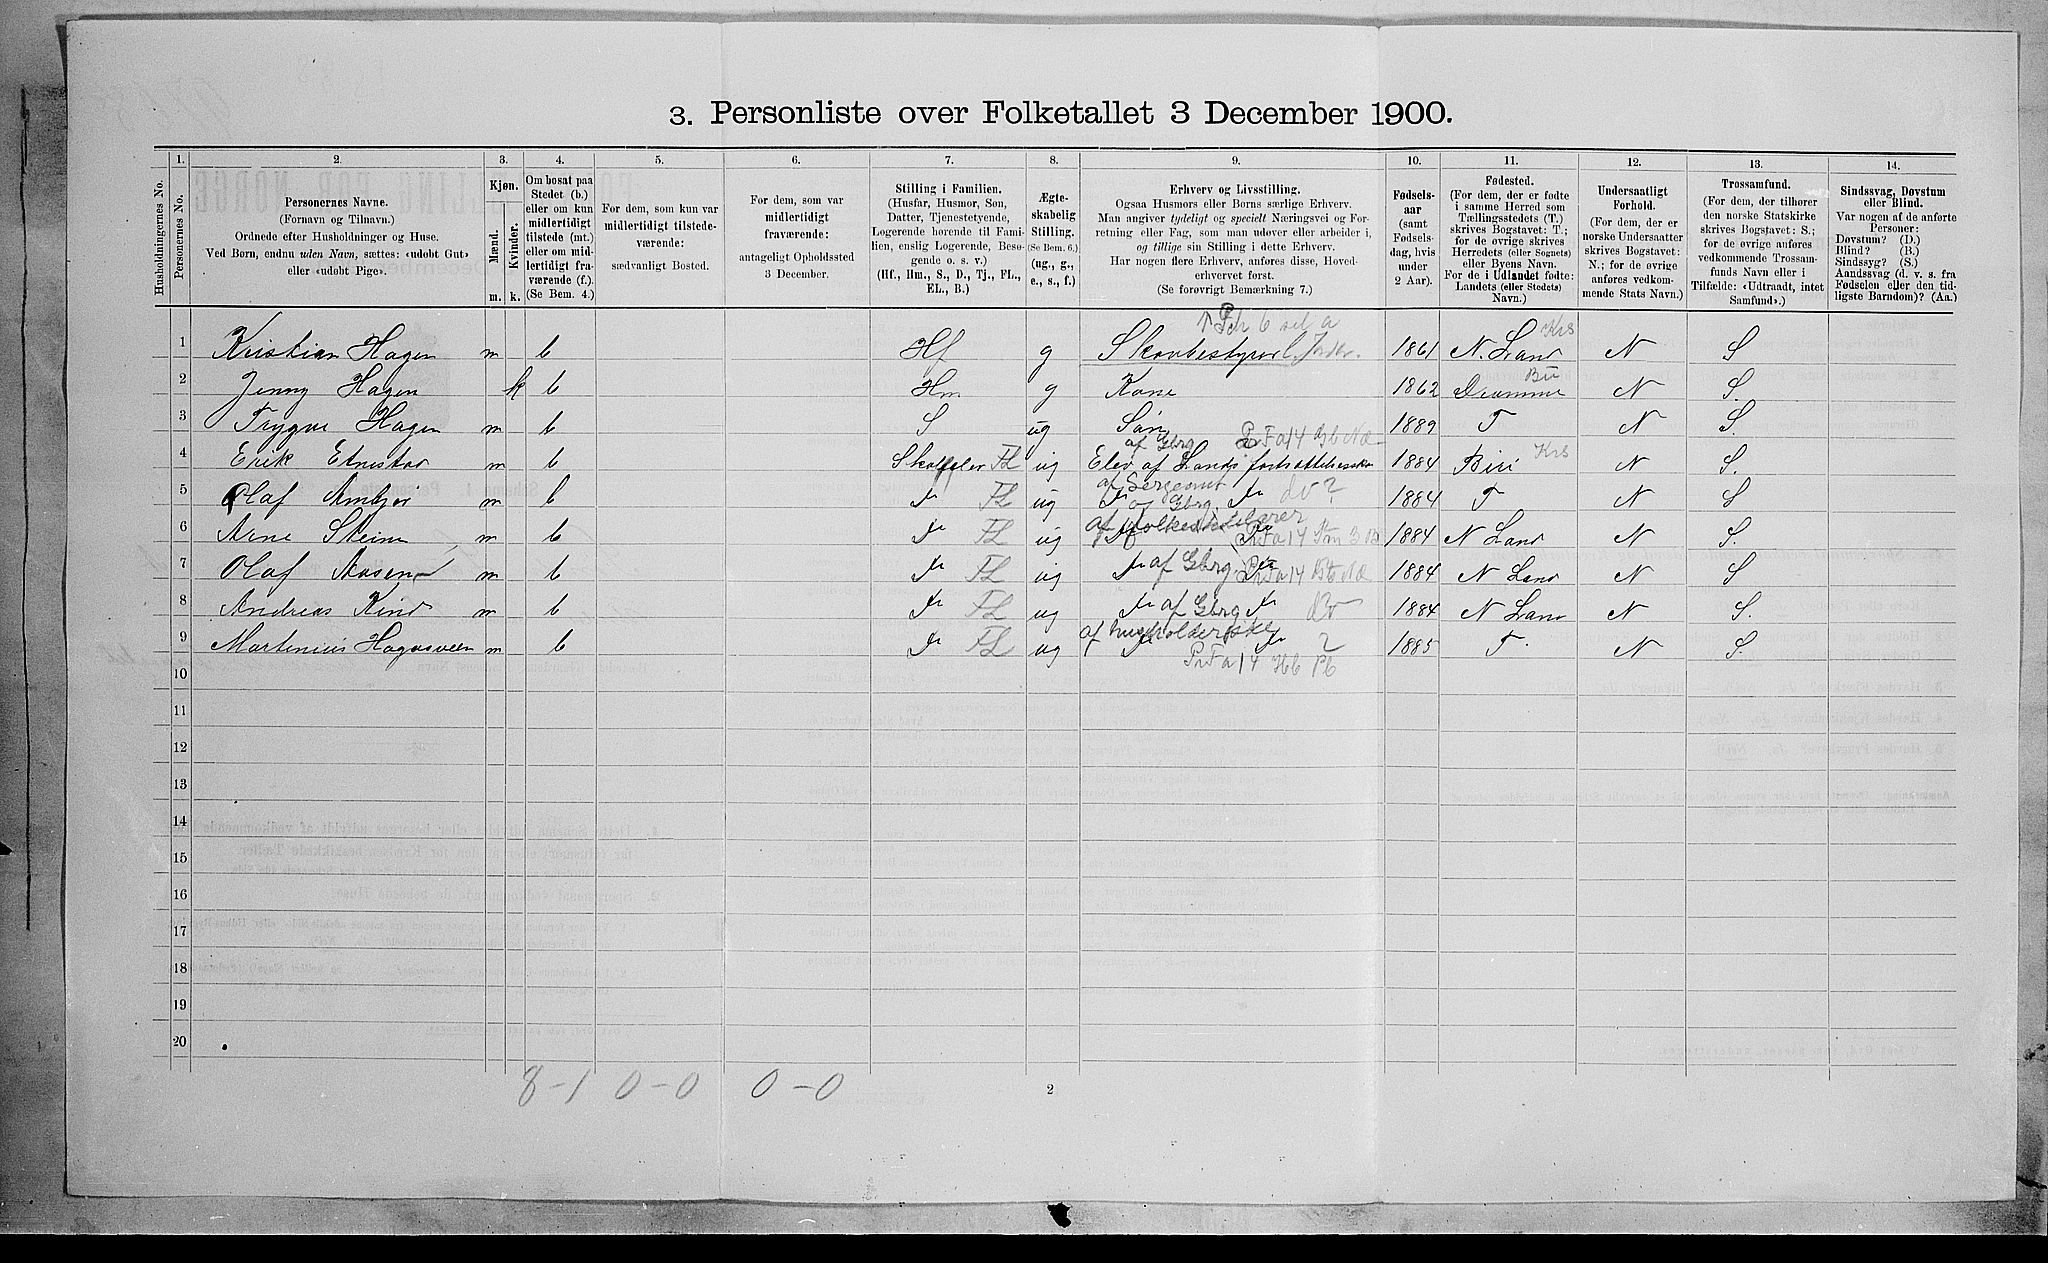 3. Personliste over Folketallet 3 December 1900.
1. 2. 3. 4. 5. 6. 7. 8. 9. 10. 11. 12. 13. 14.
Husholdningernes No.
Personernes No.
Personernes Navne.
(Fornavn og Tilnavn.)
Ordnede efter Husholdninger og Huse.
Ved Børn, endnu uden Navn, sættes: «udøbt Gut»
eller «udøbt Pige».
Kjøn.
Mænd.
Kvinder.
m. k.
Om bosat paa
Stedet (b.)
eller om kun
midlertidigt
tilstede (mt.)
eller om mid-
lertidigt fra-
værende (f.).
(Se Bem. 4.)
For dem, som kun var
midlertidigt tilstede-
værende:
sædvanligt Bosted.
For dem, som var
midlertidigt
fraværende:
antageligt Opholdssted
3 December.
Stilling i Familien.
(Husfar, Husmor, Søn,
Datter, Tjenestetyende,
Logerende hørende til Fami-
lien, enslig Logerende, Besø-
gende o. s. v.)
(Hf., Hm., S., D., Tj., FL.,
EL., B.)
Ægte-
skabelig
Stilling.
(Se Bem. 6.)
(ug., g.,
e., s., f.)
Erhverv og Livsstilling.
Ogsaa Husmors eller Børns særlige Erhverv.
Man angiver tydeligt og specielt Næringsvei og For-
retning eller Fag, som man udøver eller arbeider i,
og tillige sin Stilling i dette Erhverv.
Har nogen flere Erhverv, anføres disse, Hoved-
erhvervet først.
(Se forøvrigt Bemærkning 7.)
Fødsels-
aar
(samt
Fødsels-
dag, hvis
under
2 Aar).
Fødested.
(For dem, der er fødte
i samme Herred som
Tællingsstedets (T.)
skrives Bogstavet: T.;
for de øvrige skrives
Herredets (eller Sognets)
eller Byens Navn.
For de i Udlandet fødte:
Landets (eller Stedets)
Navn.)
Undersaatligt
Forhold.
(For dem, der er
norske Undersaatter
skrives Bogstavet:
N.; for de øvrige
anføres vedkom-
mende Stats Navn.)
Trossamfund.
(For dem, der tilhører
den norske Statskirke
skrives Bogstavet: S.;
for de øvrige anføres
vedkommende Trossam-
funds Navn eller i
Tilfælde: «Udtraadt, intet
Samfund».)
Sindssvag, Døvstum
eller Blind.
Var nogen af de anførte
Personer:
Døvstum? (D.)
Blind? (B.)
Sindssyg? (S.)
Aandssvag (d. v. s. fra
Fødselen eller den tid-
ligste Barndom)? (Aa.)
1 Kristian Hagen m b Hf g Skovbestyrer 1861 N. Land Krs N S
2 Jenny Hagen k b Hm g Kone 1862 Dramme Bu N S.
3 Trygve Hagen m b S ug Søn 1889 T N S.
af Gbrg
4 Erik Etnestad m b Skoleelev FL ug Elev af Lands fortsættelsessko 1884 Biri Krs N S.
af Sergeant
5 Olaf m b do FL ug do og Gbrg. do do ? 1884 T N S
6 Arne Steine m b do FL ug 1884 N Land N S.
7 Olaf Aasen m b do FL ug do af Gbrg. do 1884 N Land N S
8 Andreas Kind m b do FL ug do af Gbrg do do 1884 N Land N S.
9 Martinius Hagasveen m b do FL ug do do ? 1885 T. N S.
10
11
12
13
14
15
16
17
18
19
20
8-1 0-0 0-0
2